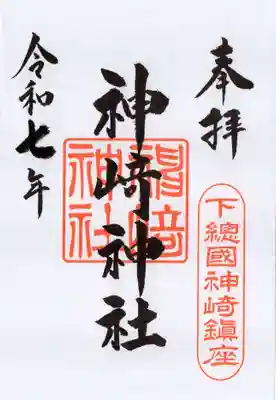 奉拝
下總國神崎鎮座
神﨑神社
神﨑神社
令和七年